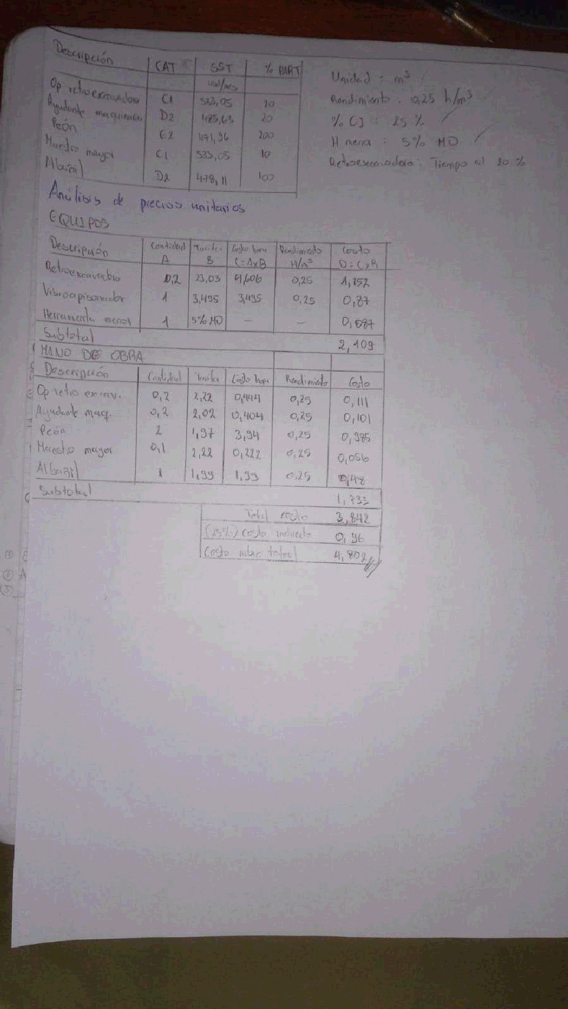 Descripción CAT SST % PART
usd/mes
Op retroexcavadora C1 533,05 20
Ayudante maquinaria D2 485,63 20
Peón E2 471,96 200
Maestro mayor C1 533,05 10
Albañil D2 478,11 100
Unidad : m³
Rendimiento : 0,25 h/m³
% CI = 25 %
H mena : 5% MO
Retroexcavadora : Tiempo al 20 %
Análisis de precios unitarios
EQUIPOS
Descripción Cantidad A Tarifa B Costo hora C=AxB Rendimiento H/m³ Costo D=CxR
Retroexcavadora 0,2 23,03 4,606 0,25 1,152
Vibroapisonador 1 3,495 3,495 0,25 0,87
Herramienta menor 1 5% MO - - 0,087
Subtotal 2,109
MANO DE OBRA
Descripción Cantidad Costo hora Rendimiento Costo
Op retro excav. 0,2 2,22 0,444 0,25 0,111
Ayudante maq. 0,2 2,02 0,404 0,25 0,101
Peón 2 1,97 3,94 0,25 0,985
Maestro mayor 0,1 2,22 0,222 0,25 0,056
Albañil 1 1,99 1,99 0,25 0,48
Subtotal 1,733
Total 3,842
(25%) Costo indirecto 0,96
Costo total 4,802